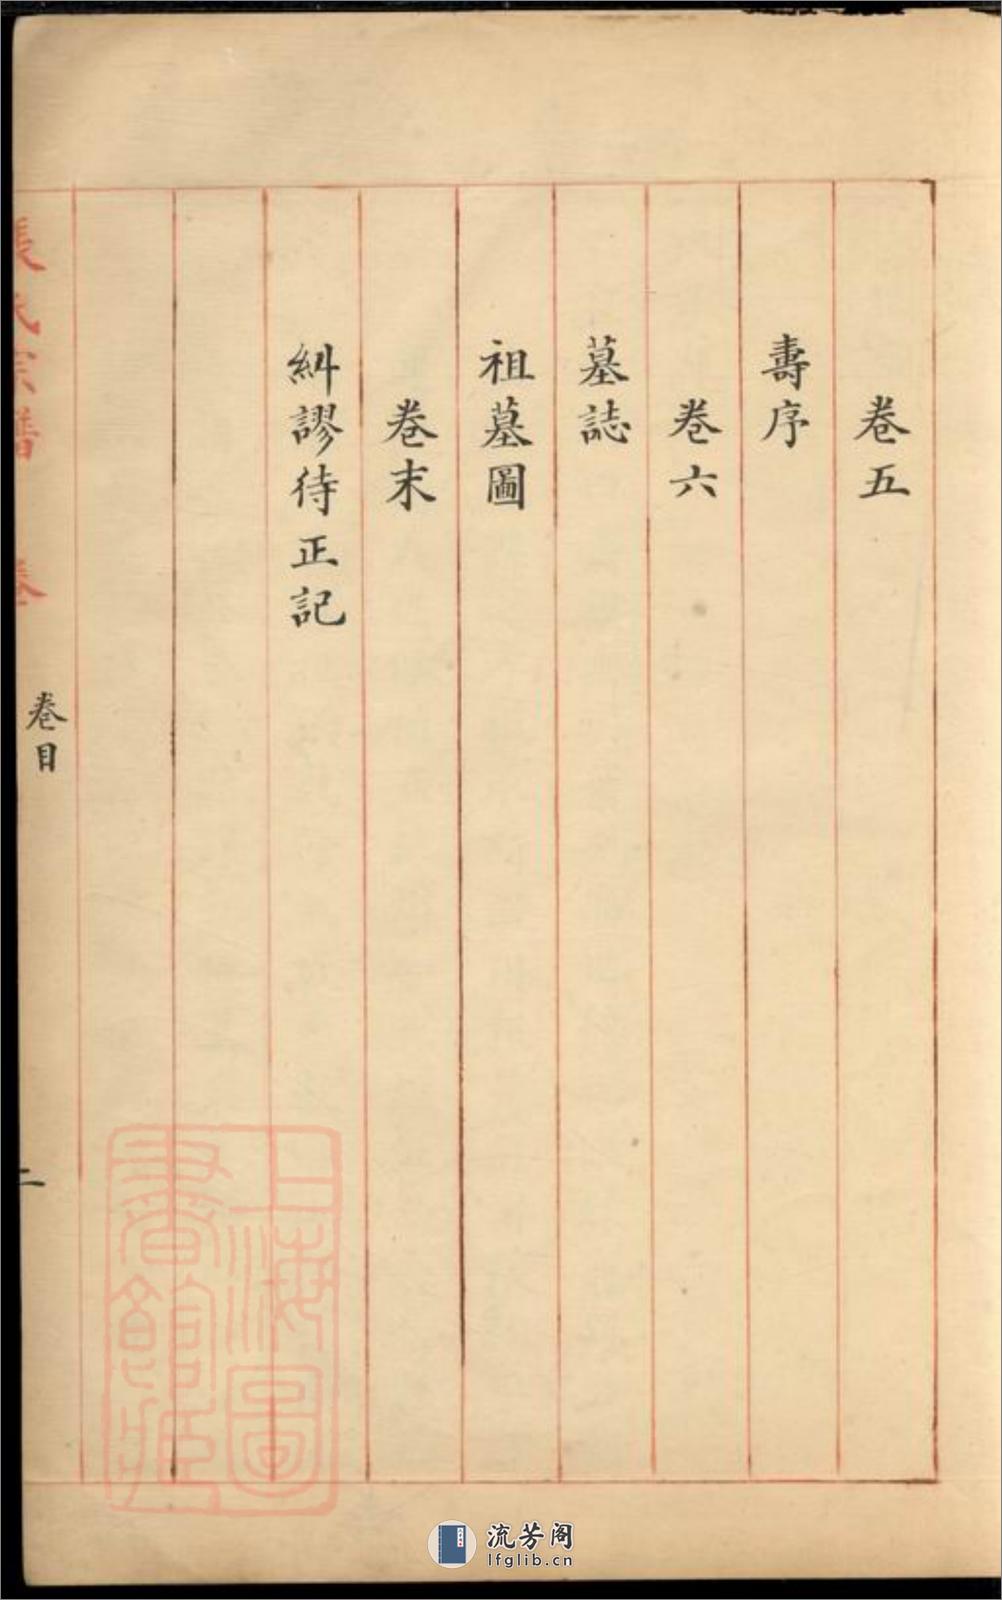 卷五
壽序
卷六
墓誌
祖墓圖
卷末
糾謬待正記
張氏宗譜 卷
卷目
二
上海圖書館藏
流芳阁
lfglib.cn